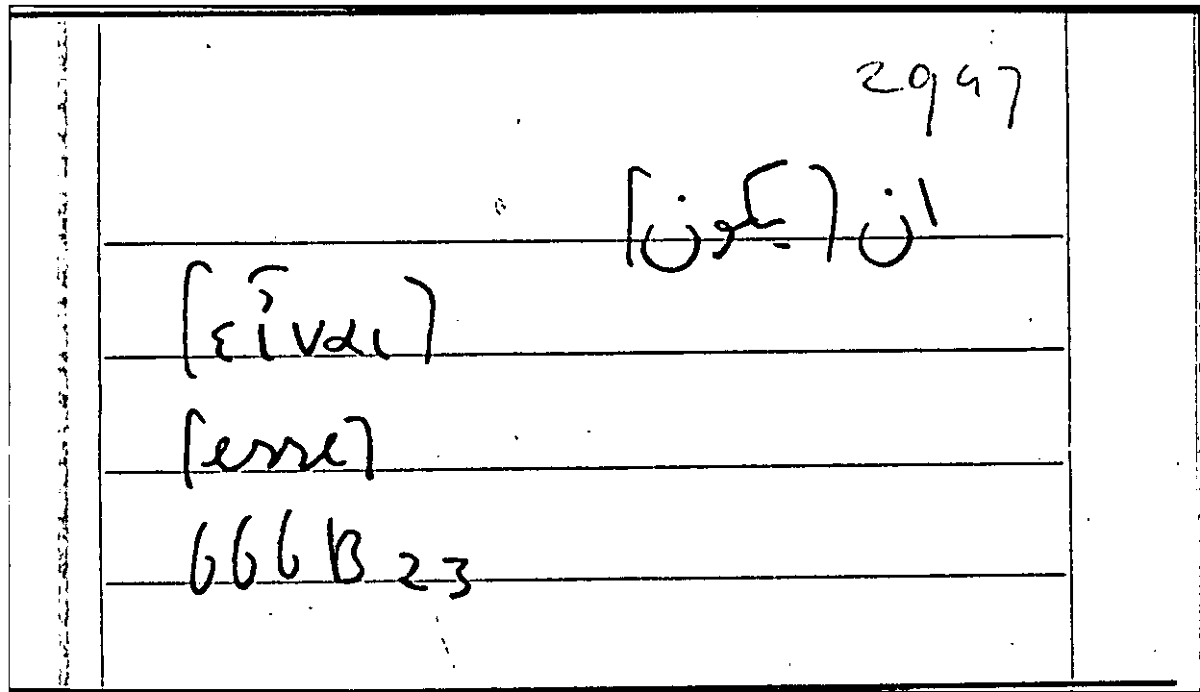 2997
ان [يكون]
[εἶναι]
[esse]
666B23